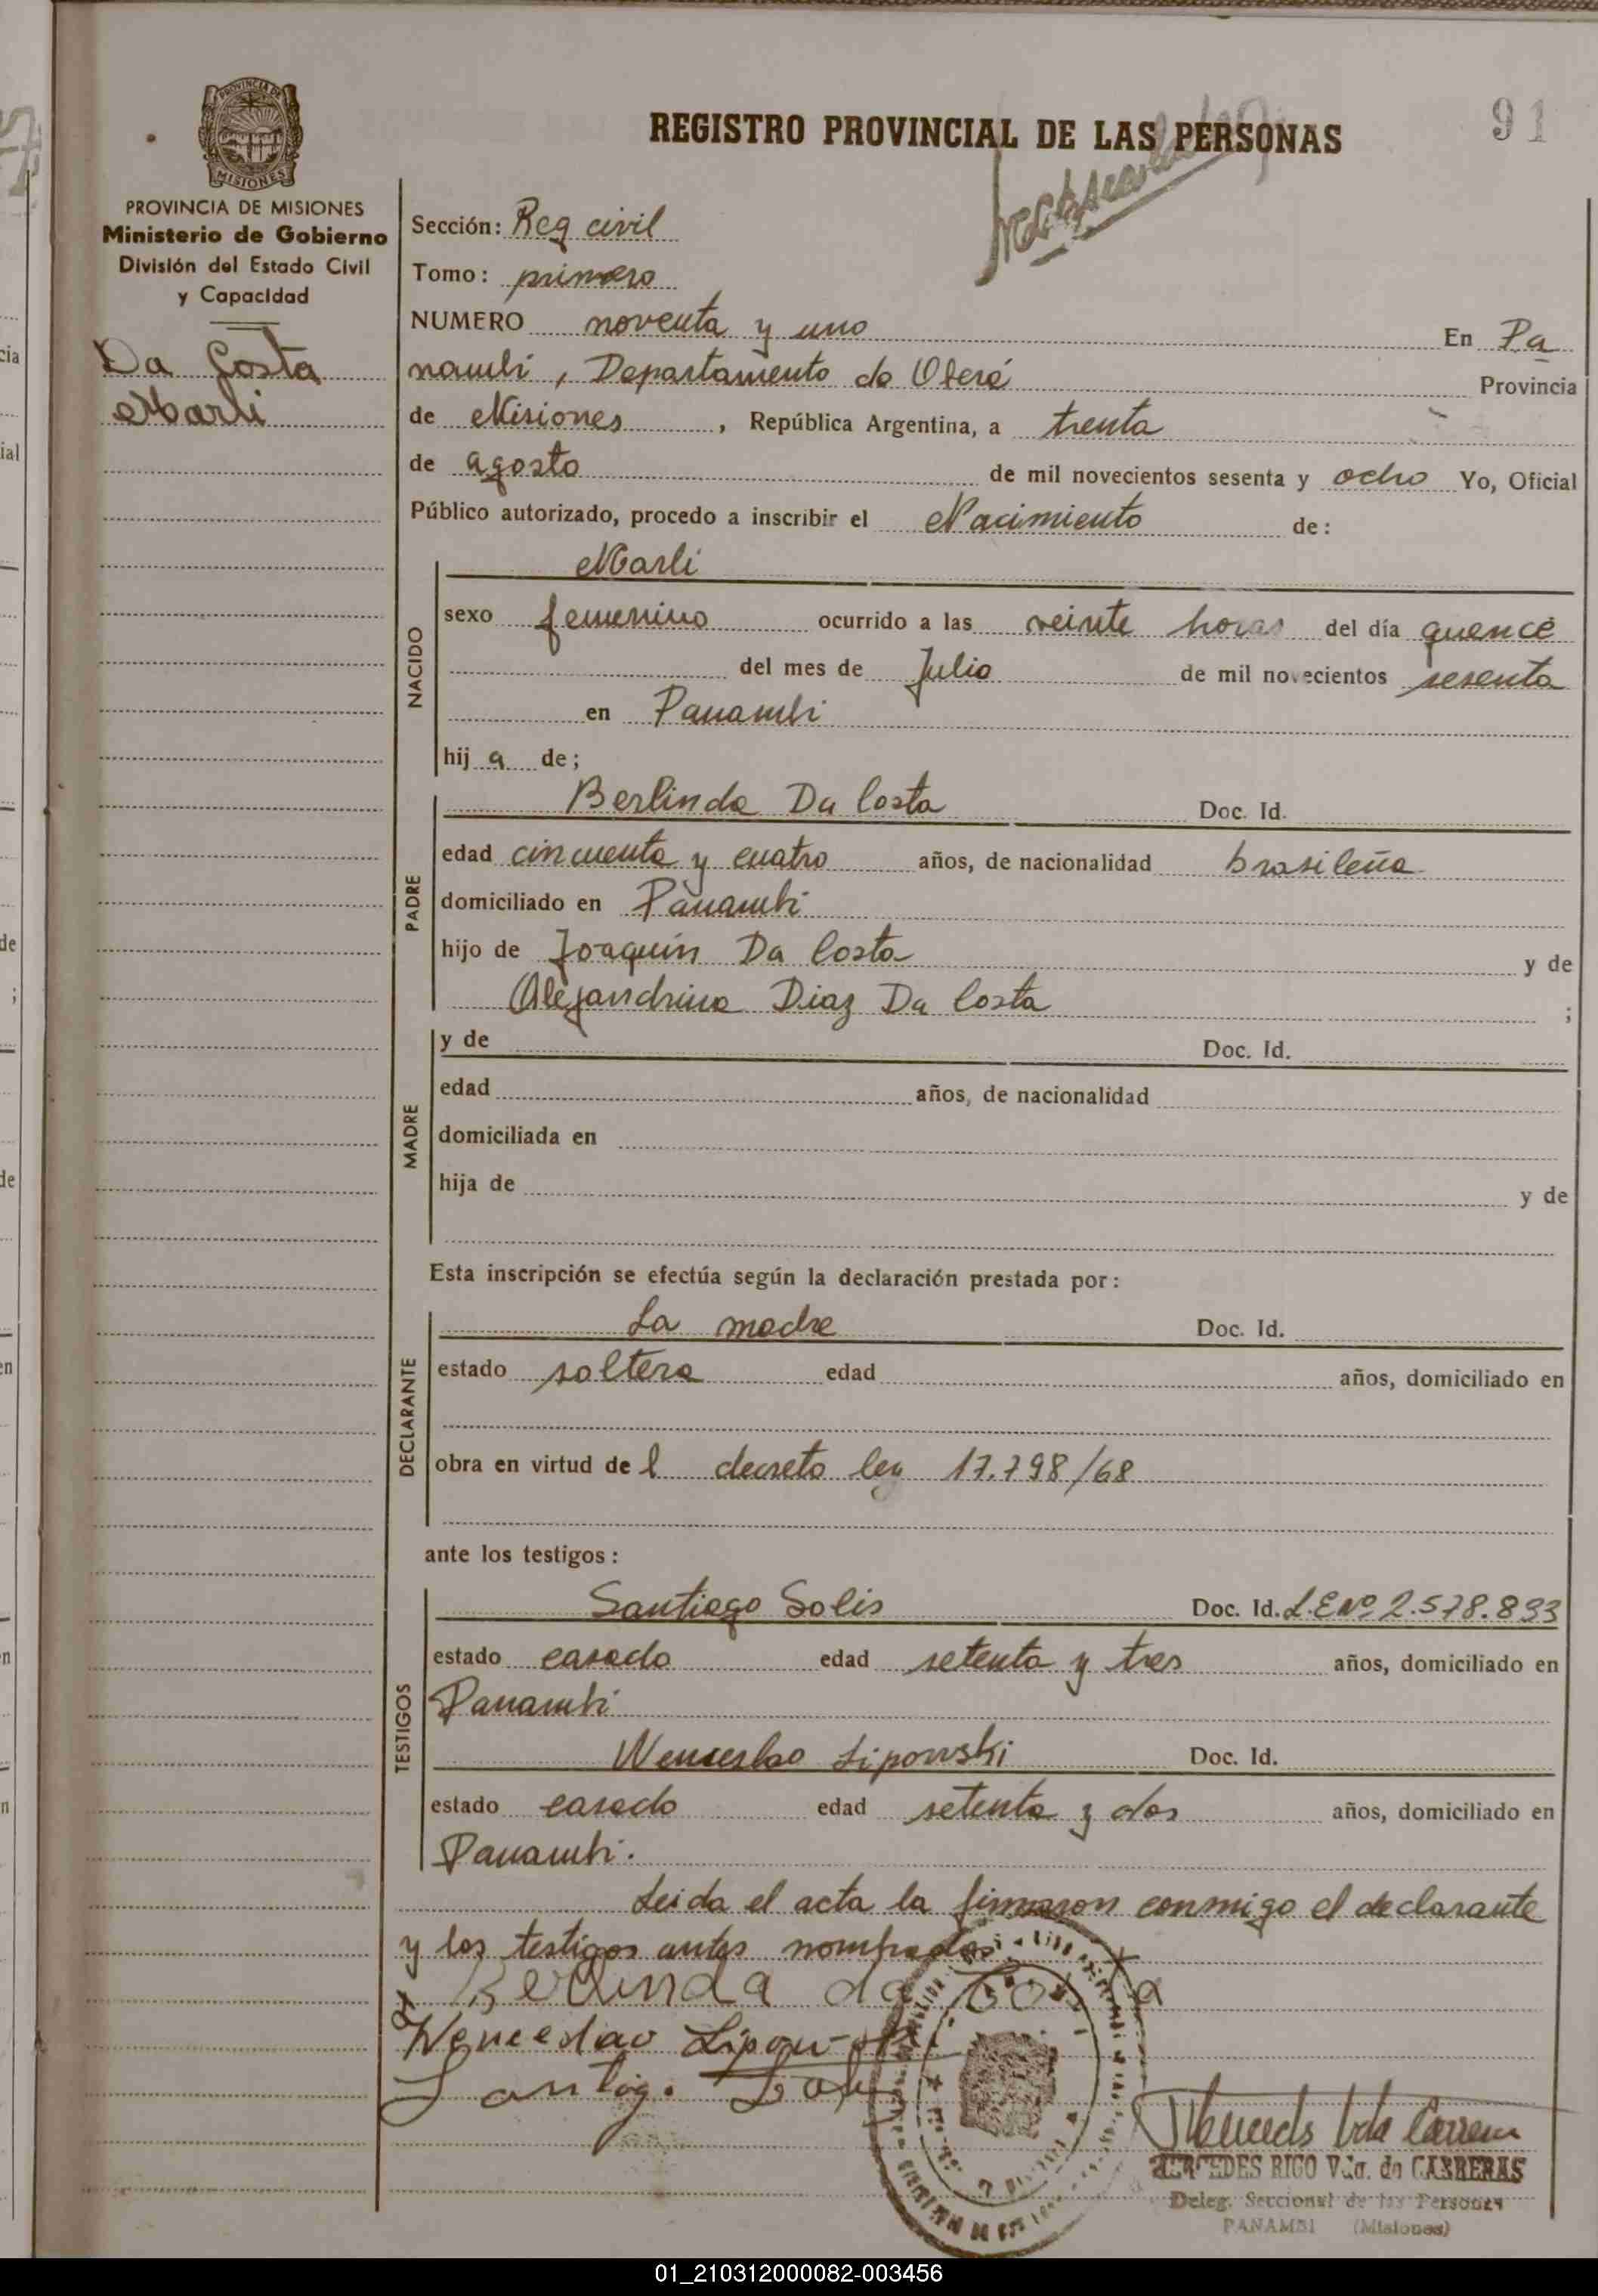 REGISTRO PROVINCIAL DE LAS PERSONAS
91
PROVINCIA DE MISIONES
PROVINCIA DE MISIONES
Ministerio de Gobierno
División del Estado Civil
y Capacidad
Da Costa
Marli
Sección: Reg civil
Tomo: primero
NUMERO noventa y uno En Pa
nambí, Departamento de Oberá Provincia
de Misiones, República Argentina, a trenta
de agosto de mil novecientos sesenta y ocho Yo, Oficial
Público autorizado, procedo a inscribir el Nacimiento de:
NACIDO
Marli
sexo femenino ocurrido a las veinte horas del día quence
del mes de Julio de mil novecientos sesenta
en Panambi
hij a de;
PADRE
Berlinda Da Costa Doc. Id.
edad cincuenta y cuatro años, de nacionalidad brasileña
domiciliado en Panambi
hijo de Joaquín Da Costa y de
Alejandrina Diaz Da Costa ;
MADRE
y de Doc. Id.
edad años, de nacionalidad
domiciliada en
hija de y de
Esta inscripción se efectúa según la declaración prestada por:
DECLARANTE
La madre Doc. Id.
estado soltera edad años, domiciliado en
obra en virtud de l decreto ley 17.798/68
ante los testigos:
TESTIGOS
Santiago Solis Doc. Id. L.E Nº 2.578.893
estado casado edad setenta y tres años, domiciliado en
Panambi
Wenceslao Lipowski Doc. Id.
estado casado edad setenta y dos años, domiciliado en
Panambi.
Leida el acta la firmaron conmigo el declarante
y los testigos antes nombrados
Berlinda da Costa
Wenceslao Lipowski
MERCEDES RICO Vda. de CARRERAS
Deleg. Seccional de las Personas
PANAMBI (Misiones)
01_210312000082-003456